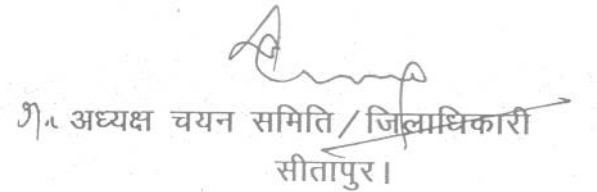 अध्यक्ष चयन समिति / जिलाधिकारी
सीतापुर।